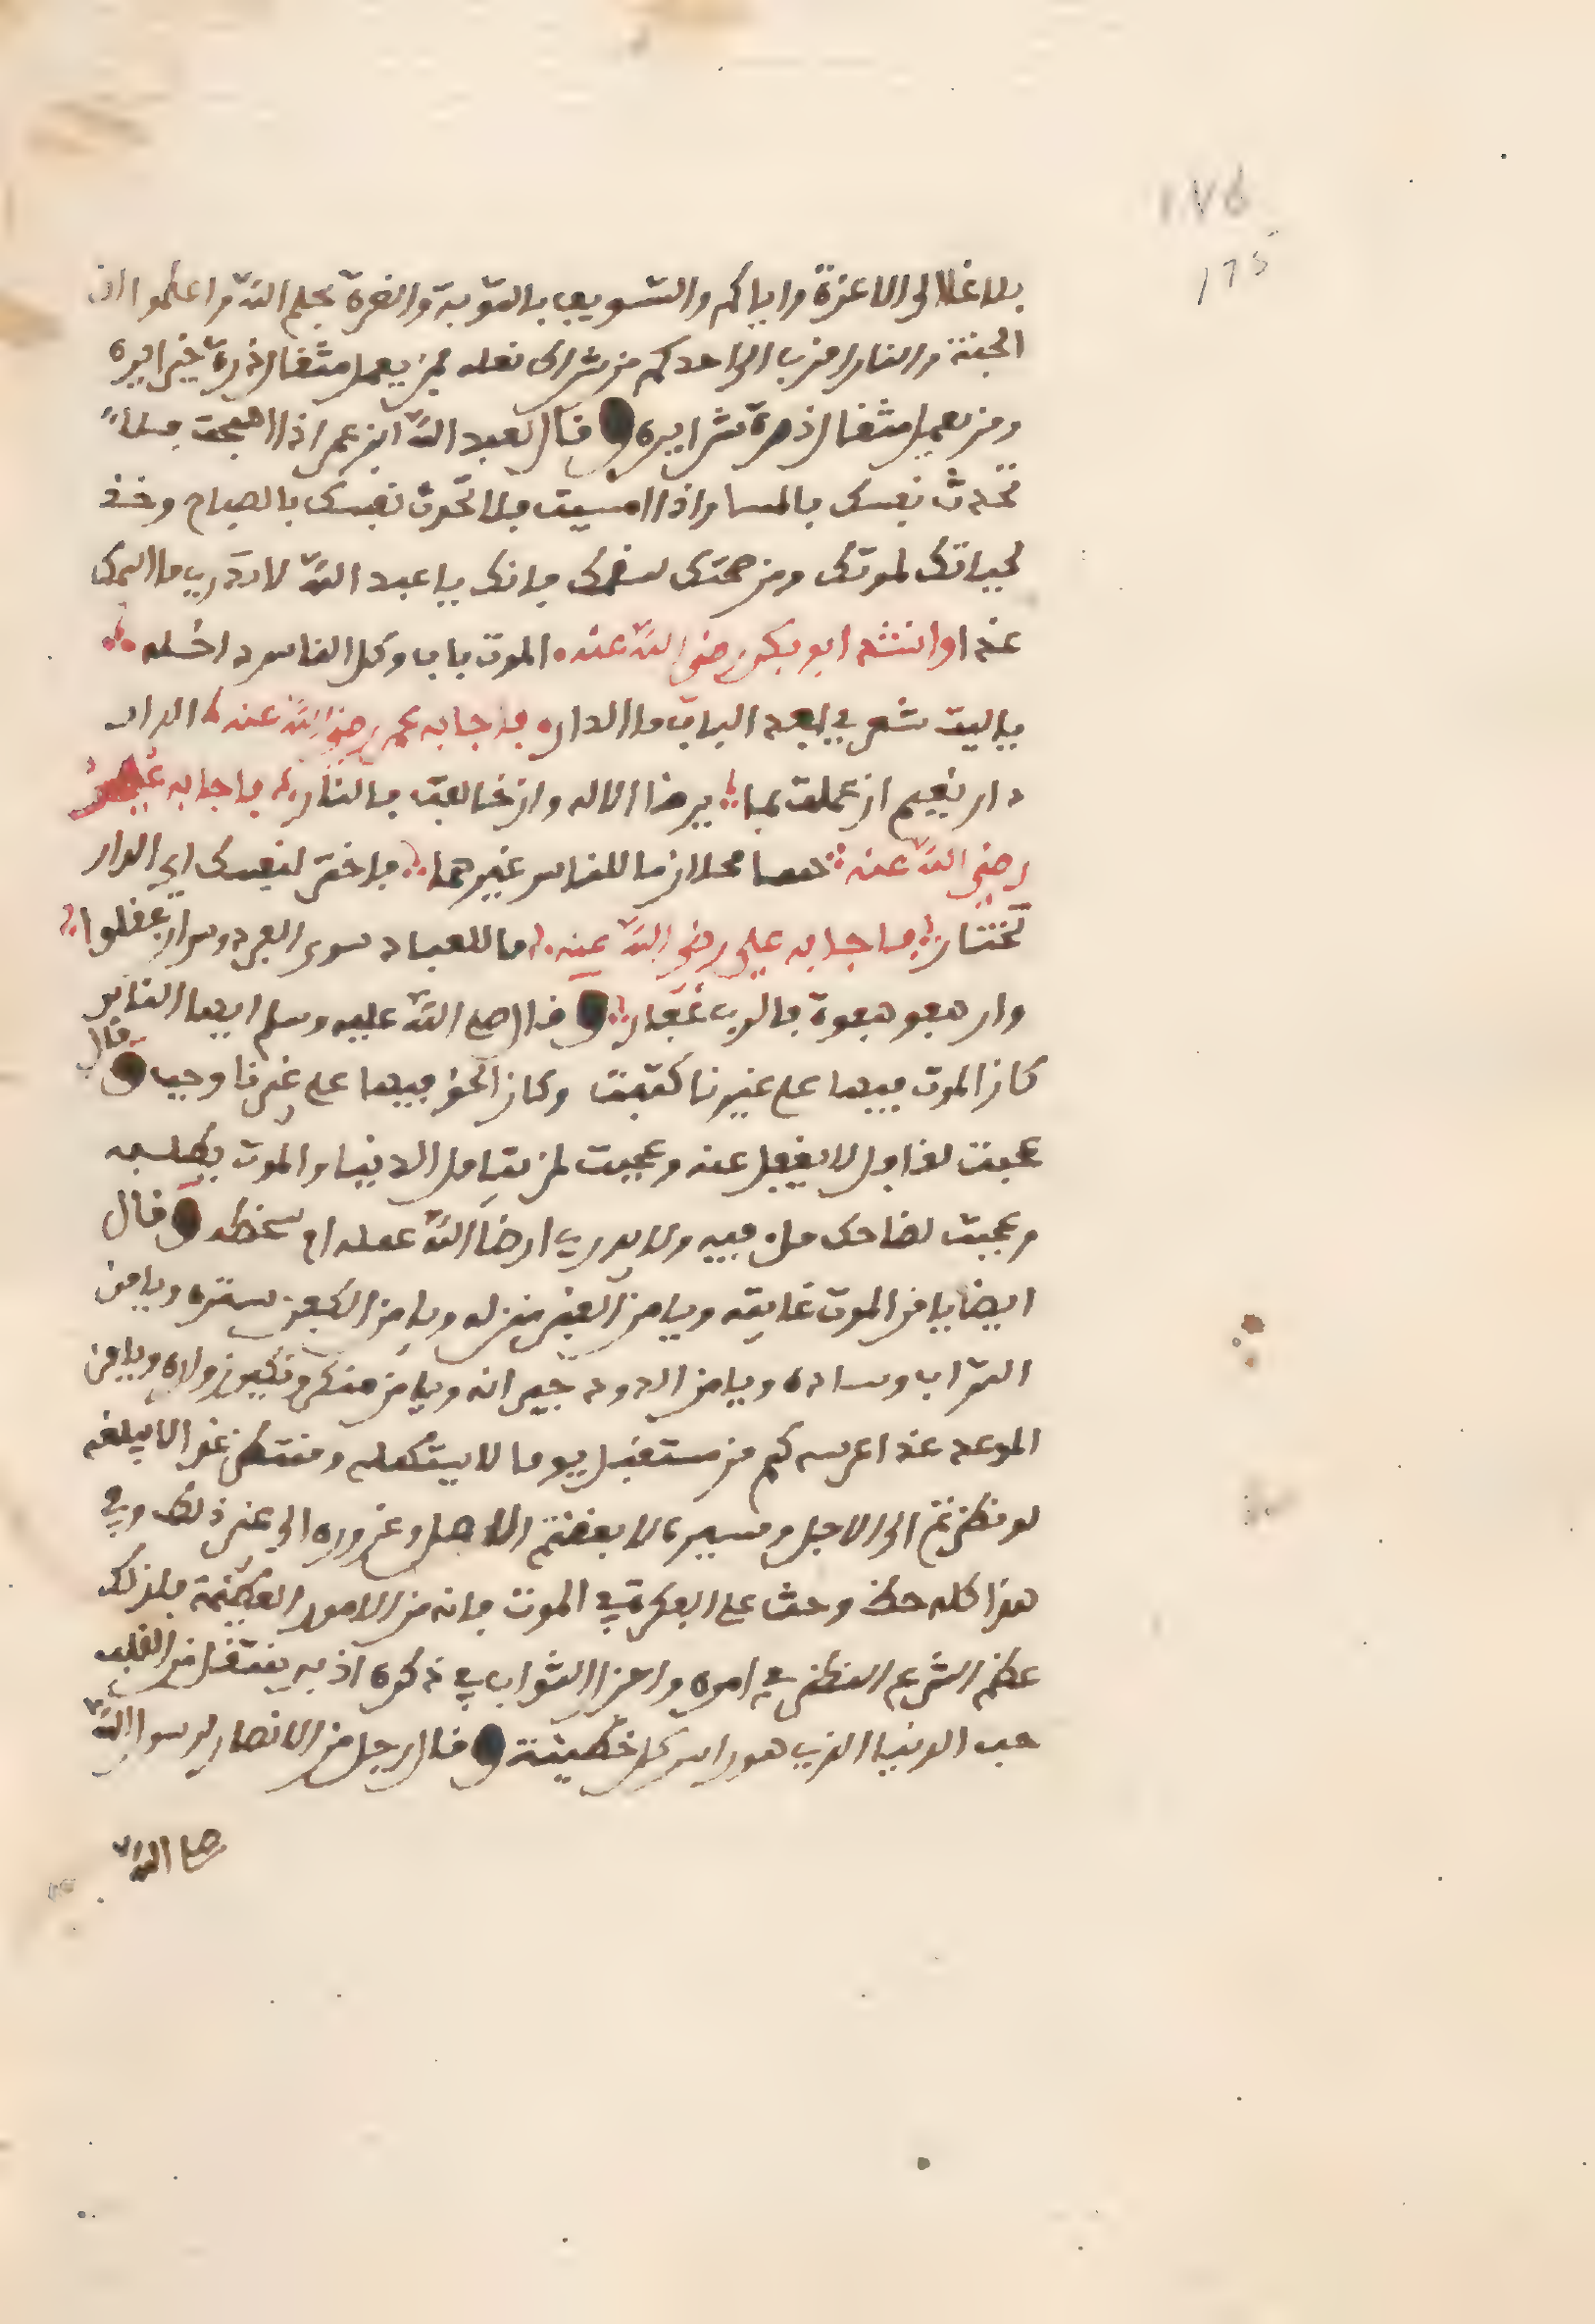 ١٧٥
175
بلا غلا الى الا عزة واياكم والتسويف بالتوبة والغرة بحلم الله واعلموا ان
الجنة والنار اقرب الى احدكم من شراك نعله فمن يعمل مثقال ذرة خيرا يره
ومن يعمل مثقال ذرة شرا يره وقال لعبد الله ابن عمر اذا اصبحت فلا
تحدث نفسك بالمسا واذا امسيت فلا تحدث نفسك بالصباح وخذ
لحياتك لموتك ومن صحتك لسقمك فانك يا عبد الله لا تدري ما اسمك
غدا وانشد ابو بكر رضي الله عنه الموت باب وكل الناس داخله
ياليت شعري بعد الباب ما الدار فاجابه عمر رضي الله عنه الدار
دار نعيم ان عملت بما يرضا الاله وان خالفت فالنار فاجابه عثمن
رضي الله عنه هما محلان ما للناس غيرهما فاختر لنفسك اي الدار
تختار فاجابه علي رضي الله عنه ما للعباد سوى الفردوس ان عملوا
وان هفو هفوة فالرب غفار وقال صلى الله عليه وسلم ايها الناس
كان الموت فيها على غيرنا كتبت وكان الحق فيها على غيرنا وجب وقال
عجبت لغافل لا يغفل عنه وعجبت لمن يتامل الدنيا والموت يطلبه
وعجبت لضاحك مل فيه ولا يدري ارضا الله عمله ام سخطه وقال
ايضا يا من الموت غايته ويا من القبر منزله ويا من الكفن ستره ويا من
التراب وساده ويا من الدود جيرانه ويا من منكر ونكير زواره ويا من
الموعد غدا عرسه كم من مستقبل يوما لا يستكمله ومنتظر غدا لا يبلغه
لو نظرتم الى الاجل ومسيره لابغضتم الامل وغروره الى غير ذلك وفي
هذا كله حظ وحث على الفكرة في الموت فانه من الامور العظيمة فلذلك
عظم الشرع النظر في امره واجزا الثواب في ذكره اذ به ينتقل من القلب
حب الدنيا الذي هو راس كل خطيئة وقال رجل من الانصار لرسول الله
صلى الله